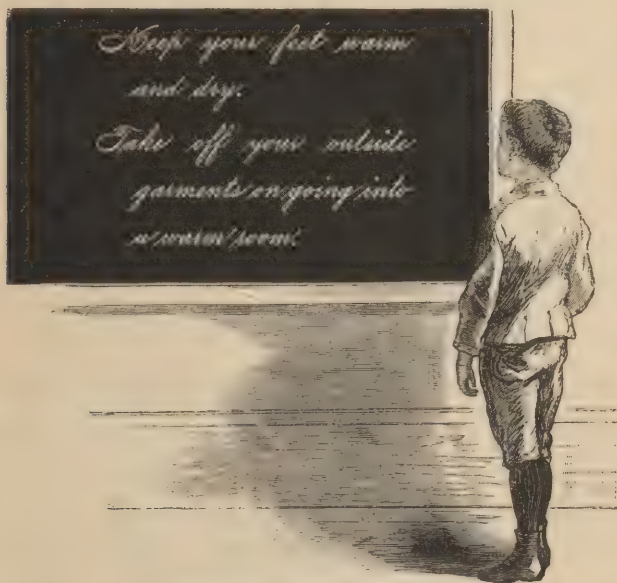 Keep your feet warm
and dry.
Take off your outside
garments on going into
a warm room.